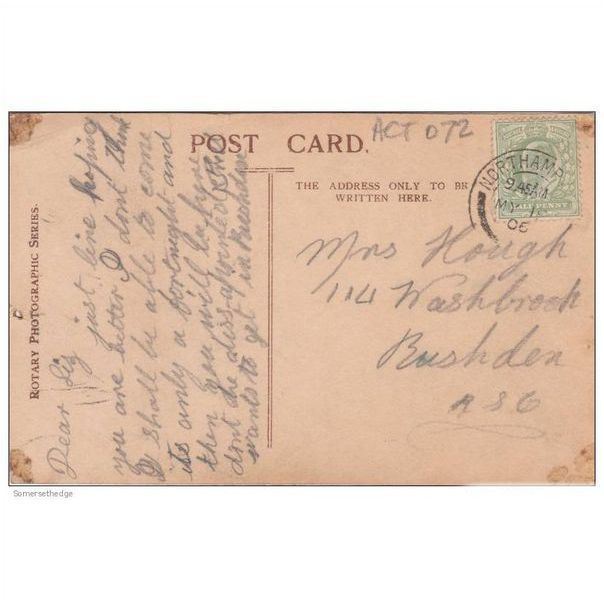 ACT D72
POST CARD.
THE ADDRESS ONLY TO BE
WRITTEN HERE.
ROTARY PHOTOGRAPHIC SERIES.
NORTHAMP
9.45AM
MY
06
HALFPENNY
Dear Siz
just line hoping
you are better I dont think
I shall be able to come
its only a fortnight and
then you will be here
dont be dissapointed
wants to get in Rushden
Mrs Hough
114 Washbrook
Rushden
Somersethedge